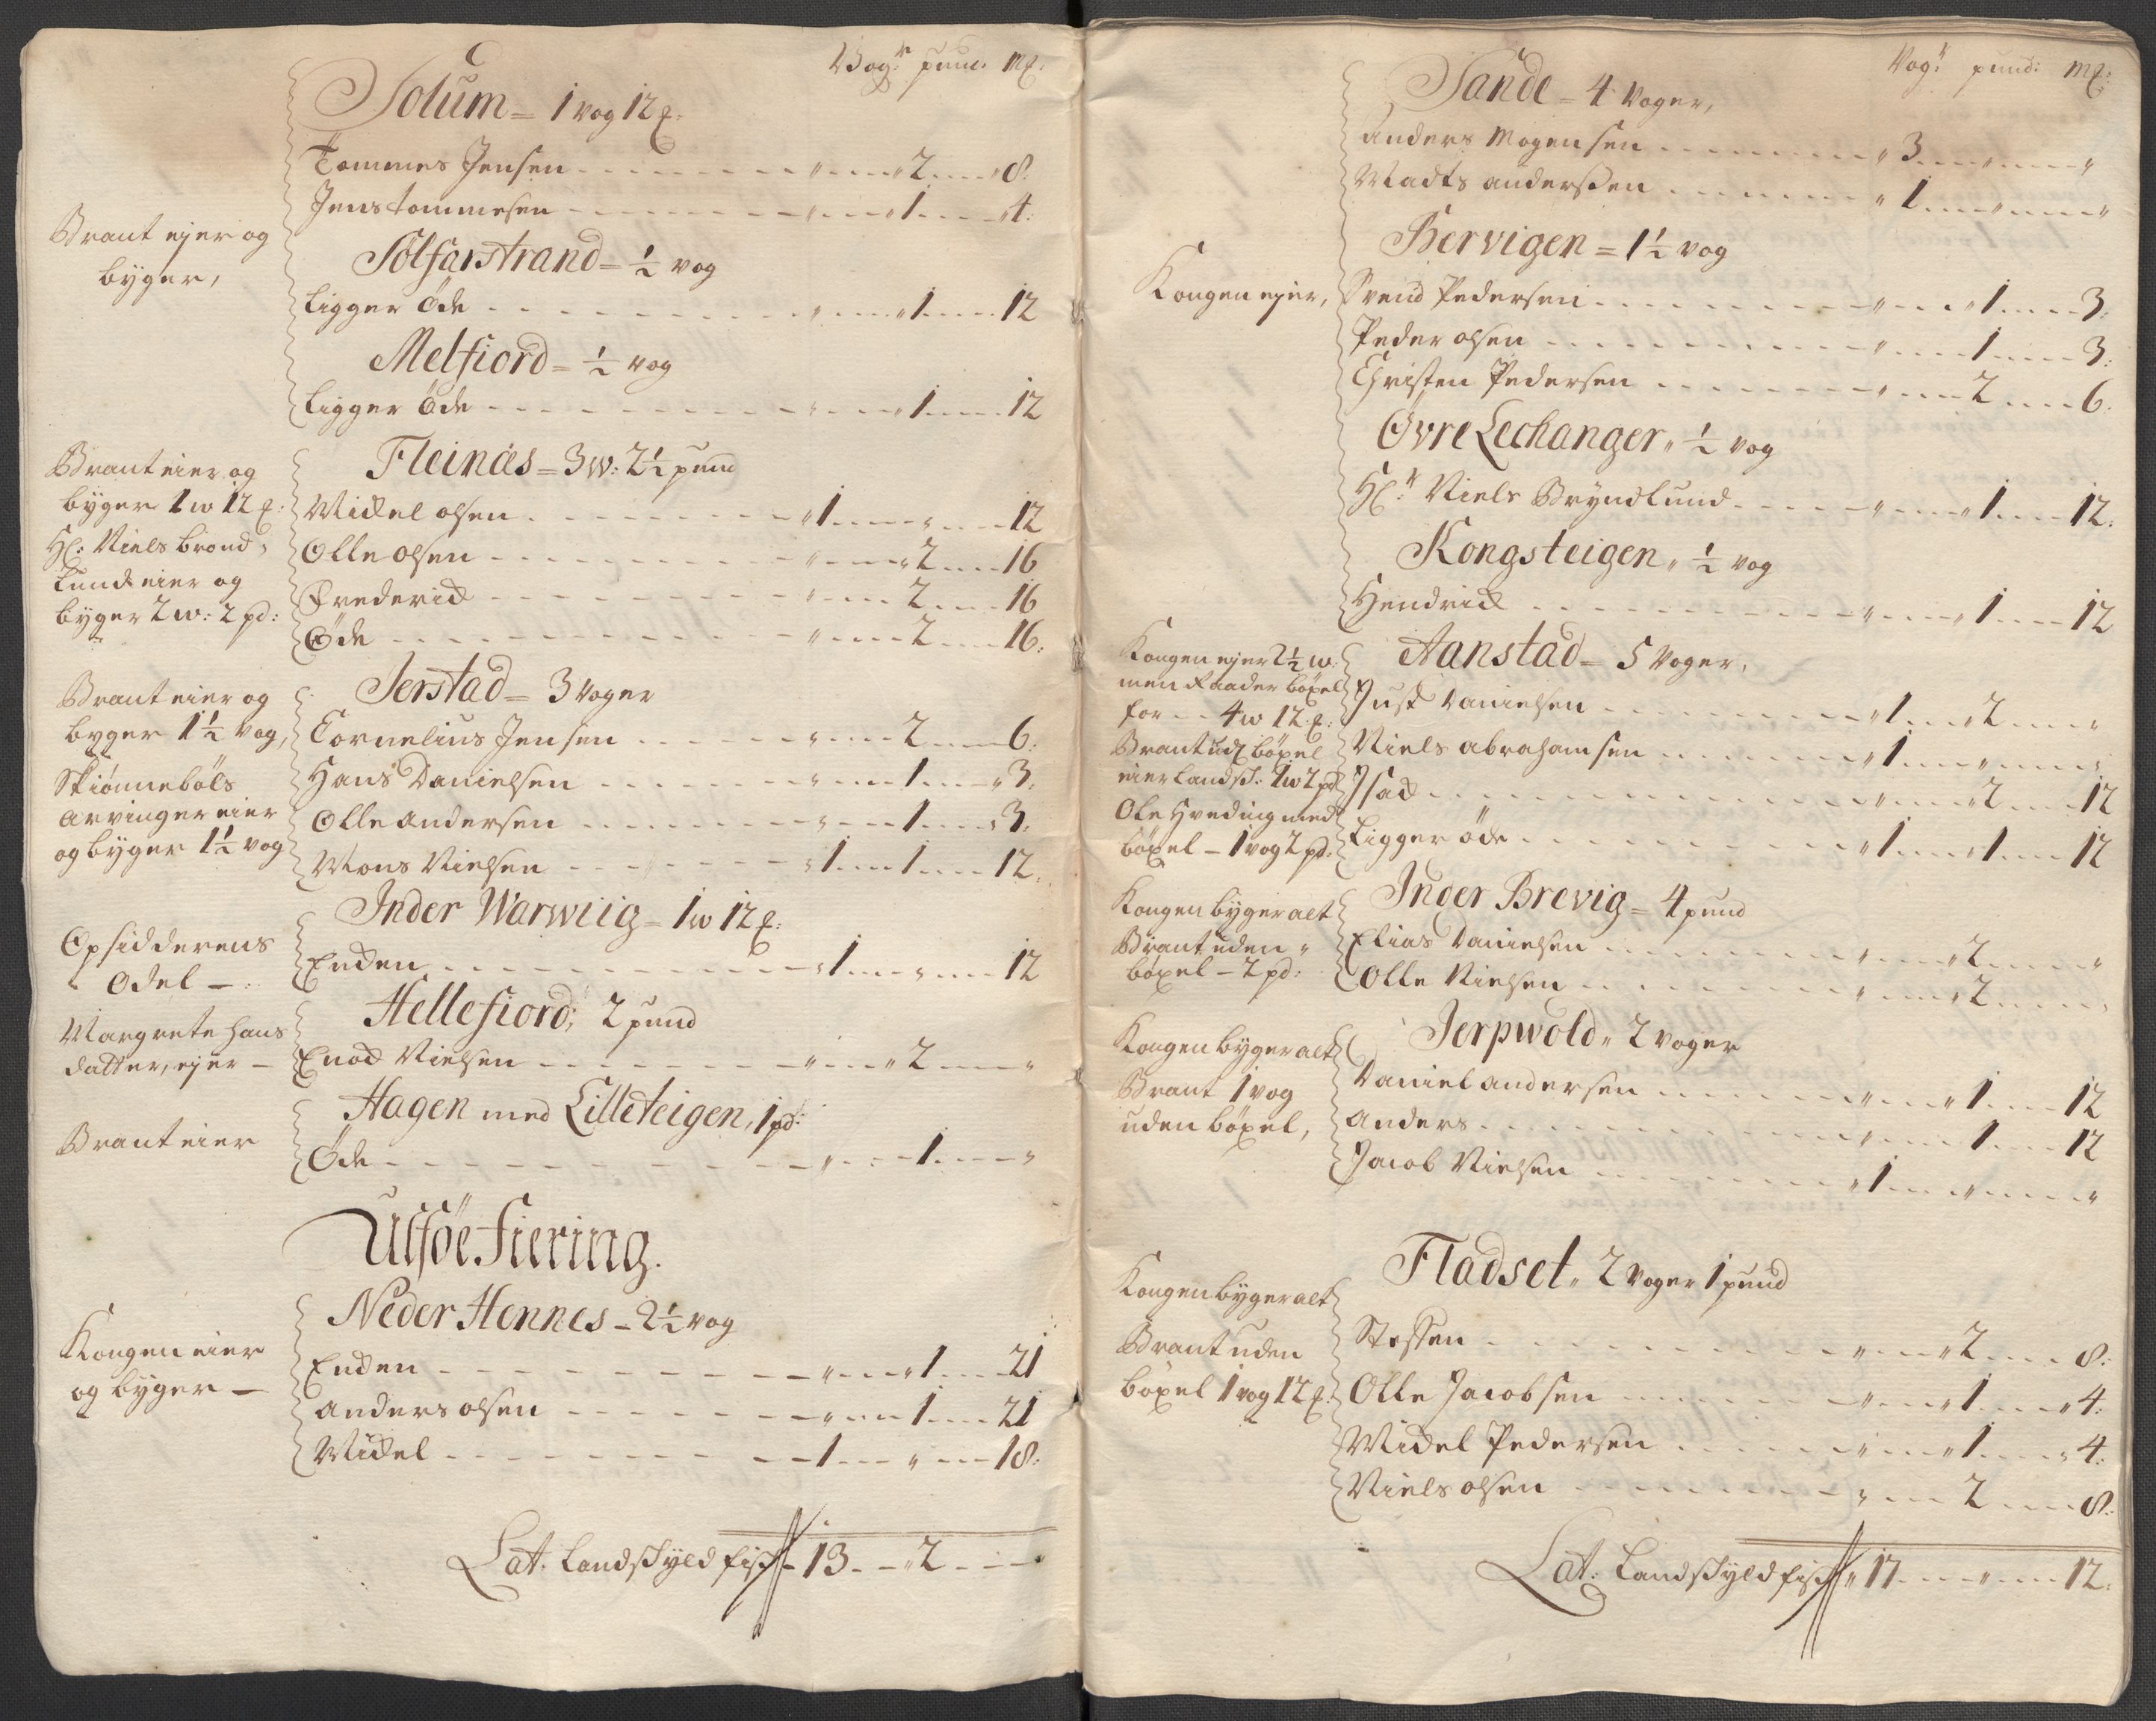 Vog:r pund: M:
Solum = 1 vog 12
Tommes Jensen - - - " - - 2 - - 8
Jens tommesen - - - " - - 1 - - 4:
Brant ejer og
byger,
Solfarstrand = ½ vog
Ligger Øde - - - " - - 1 - - 12
Melfiord = ½ vog
Ligger Øde - - - " - - 1 - - 12
Brant eier og
byger 1 w 12
Hl: Niels Brond,
Lund eier og
byger 2 w: 2 pd:
Fleinæs = 3 w: 2½ pund
Mickel olsen - - - 1 - - " - - 12
Olle olsen - - - " - - 2 - - 16
Frederick - - - " - - 2 - - 16
Øde - - - " - - 2 - - 16:
Brant eier og
byger 1½ vog,
Skiønnebøls
arvinger eier
og byger 1½ vog
Jerstad = 3 Voger
Cornelius Jensen - - - " - - 2 - - 6:
Hans Danielsen - - - " - - 1 - - 3:
Olle andersen - - - " - - 1 - - 3:
Mons Nielsen - - - 1 - - 1 - - 12:
Opsidderens
Odel -
Inder Warwiig = 1 w 12
Enden - - - 1 - - " - - 12
Margrete hans
datter, ejer -
Hellefiord; 2 pund
Enock Nielsen - - - " - - 2 - - "
Brant eier
Hagen med Lilleteigen, 1 pd:
Øde - - - " - - 1 - - "
Utføe Fiering.
Kongen eier
og byger -
Neder Hennes - 2½ vog
Enden - - - " - - 1 - - 21
anders olsen - - - " - - 1 - - 21
Mickel - - - 1 - - " - - 18:
Lat: Landskyld fisk - 13 - - 2 - -
Vog:r pund: M:
Sande = 4 Voger,
anders Mogensen - - - 3 - - " - - "
Madts anderssen - - - 1 - - " - - "
Bervigen = 1½ vog
Kongen ejer,
Svend Pedersen - - - " - - 1 - - 3:
Peder olsen - - - " - - 1 - - 3:
Christen Pedersen - - - " - - 2 - - 6:
Øvre Lechanger, ½ vog
Hl:r Niels Bryndlund - - - " - - 1 - - 12:
Kongsteigen, ½ vog
Hendrick - - - " - - 1 - - 12
Kongen ejer 2½ w:
men Raader bøxel
for - - 4 w 12
Brant ud bøxel
eier Landsk: 1 w 2 pd
Ole Hveding med
bøxel - 1 vog 2 pd:
Aanstad = 5 Voger,
Just Danielsen - - - 1 - - 2 - - "
Niels abrahamsen - - - 1 - - " - - "
Isack - - - " - - 2 - - 12
Ligger øde - - - 1 - - 1 - - 12
Kongen byger alt
Brant uden
bøxel - 2 pd:
Inder Brevig = 4 pund
Elias Danielsen - - - " - - 2 - - "
Olle Nielsen - - - " - - 2 - - "
Kongen byger alt
Brant 1 vog
uden bøxel,
Jerpwold, 2 voger
Daniel andersen - - - " - - 1 - - 12
anders - - - " - - 1 - - 12
Jacob Nielsen - - - 1 - - " - - "
Kongen byger alt
Brant uden
bøxel 1 vog 12
Fladset, 2 voger 1 pund
Steffen - - - " - - 2 - - 8:
Olle Jacobsen - - - " - - 1 - - 4:
Mickel Pedersen - - - " - - 1 - - 4:
Niels olsen - - - " - - 2 - - 8:
Lat: Landskyld fisk " 17 - - " - - 12: